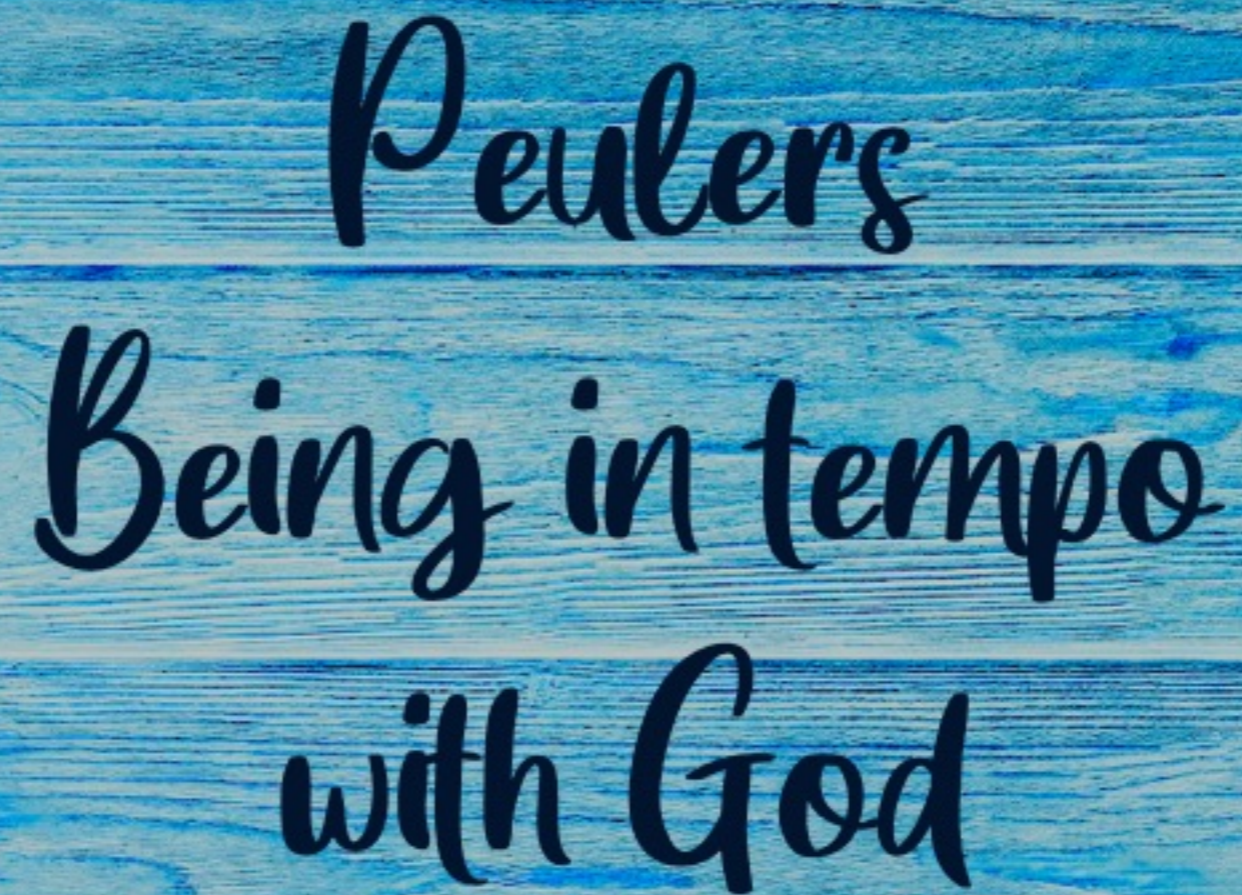 Peulers
Being in tempo
with God